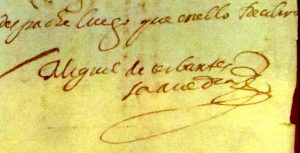 despacho luego que en ello Recibire
Miguel de cerbantes
saauedra